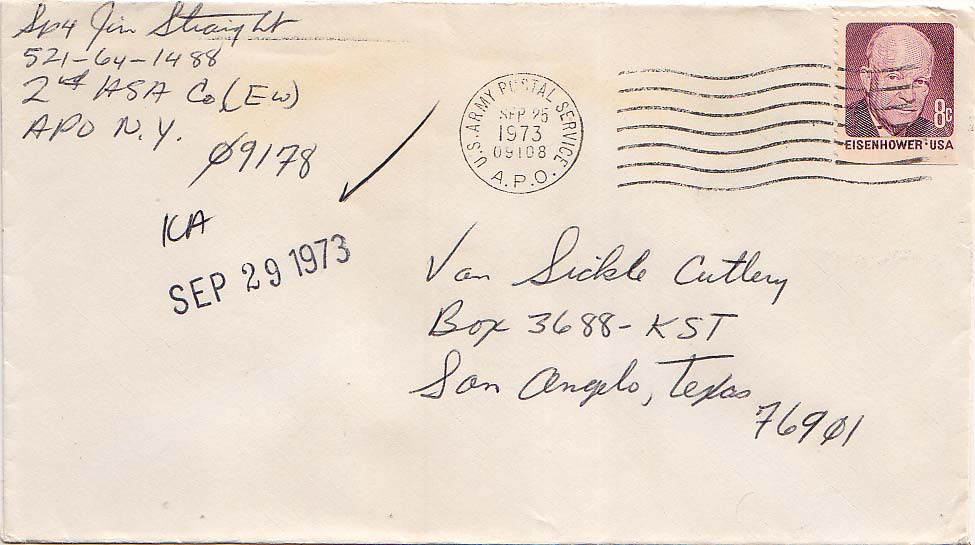 Sp4 Jim Straight
521-64-1488
2nd ASA Co (EW)
APO N.Y.
09178
U.S. ARMY POSTAL SERVICE
SEP 25
1973
09108
A.P.O.
8c
EISENHOWER·USA
KA
SEP 29 1973
Van Sickle Cutlery
Box 3688-KST
San Angelo, Texas
76901